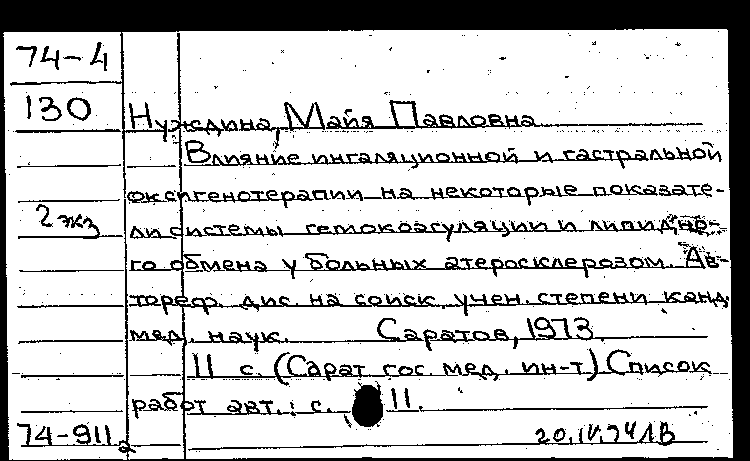 74-4
130
Нуждина, Майя Павловна
Влияние ингаляционной и гастральной
оксигенотерапии на некоторые показате-
2 экз
ли системы гемокоагуляции и липидно-
го обмена у больных атеросклерозом. Ав-
тореф. дис. на соиск. учен. степени канд.
мед. наук. Саратов, 1973.
11 с. (Сарат гос. мед. ин-т) Список
работ авт.: с. 11.
74-911
20.IV.74